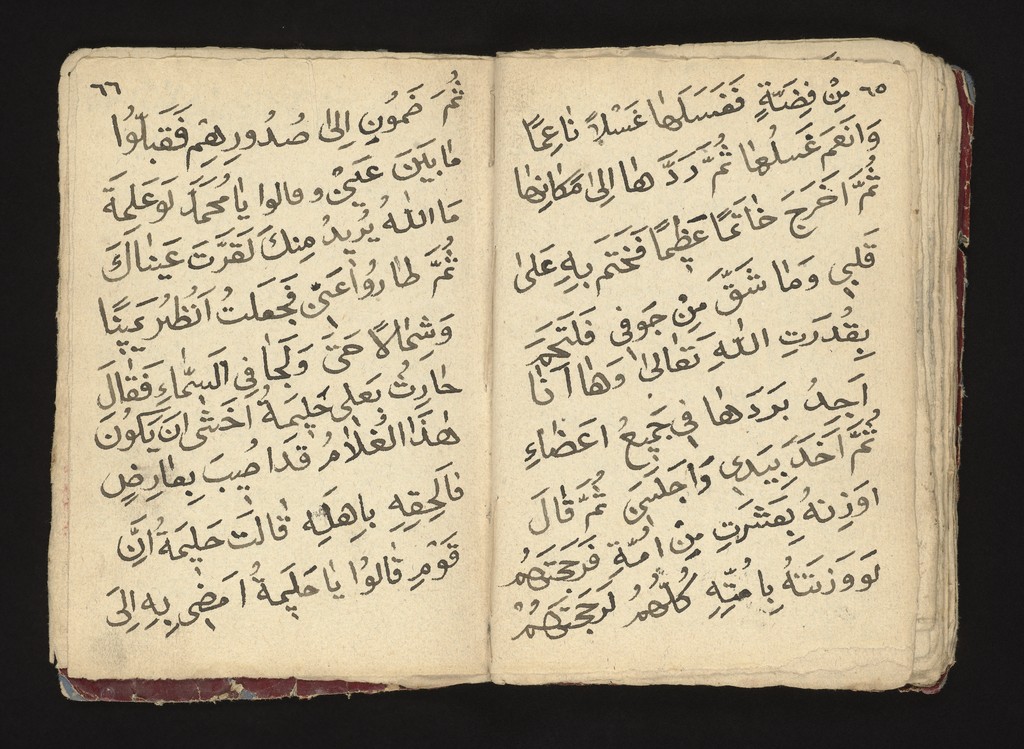 ٦٥
مِنْ فِضَّةٍ فَغَسَلَهَا غَسْلاً نَاعِمًا
وَانَعَم غَسلُها ثُمَّ رَدَّ ها اِلىٰ مَكَانِهَا
ثُمَّ اَخَرَجَ خَاتَمًا عَظِيمًا فَخَتَم بِهِ عَلىٰ
قَلبي وَمَا شَقَّ مِنْ جَوفى فَلتَحَمَ
بِقُدرَتِ اللهِ تَعَالىٰ وَهَا اَنَا
اَجِدُ بَرَدَهَا فى جَمِيعُ اعَضَاءِ
ثُمَّ اَخَدَ بِيَدِى وَاَجلَسَنى ثُمَّ قَالَ
اوَزِنهُ بِعَشَرَتِ مِنْ امُتَّهِ فَرَجَحتَهُم
لَو وَزَنتَهُ بِامُتّهِ كُلّهُمْ لَرجَحتَهُمْ
٦٦
ثُمَ ضَمُونِ اِلىٰ صُدُورِهِم فَقَبلّوُا
مَا بَيَن عَينَىْ وقالوا يَا مُحَمَّد لَو عَلِمةَ
مَا اللهُ يُرِيدُ مِنكَ لَقَرَّتَ عَينَاكَ
ثُمَّ طَارُوا عَنىّ فَجَعَلتُ اَنظُرُ يَمِينًا
وَشِمَالاً حَتىٰ وَلَجَا فِى السَّمَاءِ فَقَالَ
حَارِثُ بَعلى حَلِيمَةُ اخَشىٰ ان يَكُونَ
هٰذَا الغُلَامُ قَد اصُيبَ بِعَارِضٍ
فاَلحِقهِ باِهَلِهِ قَالَت حَلِيمَةُ انَّ
قَوَمِ قَالُوا يَا حَلِيَمةُ امَضىِ بِهِ اِلىَ